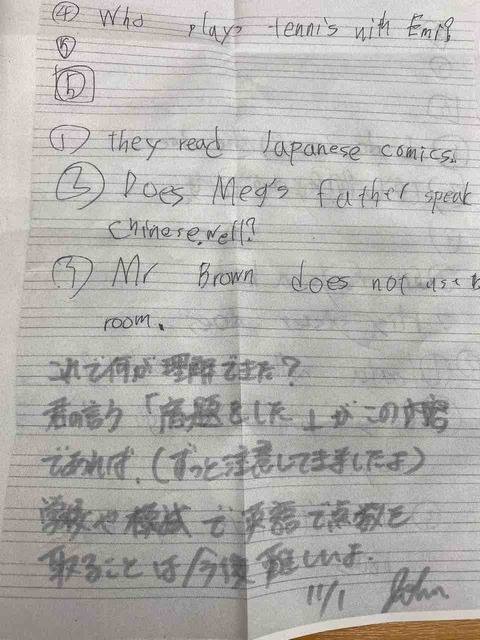 ④ Who plays tennis with Emi?
⑤
5
① they read Japanese comics.
② Does Meg's father speak
chinese well?
③ Mr Brown does not use
room.
これで何が理解できた?
君の言う「宿題をした」がこの内容
であれば、(ずっと注意してきましたよ)
学校や模試で英語で点数を
取ることは今後難しいよ.
11/1 John